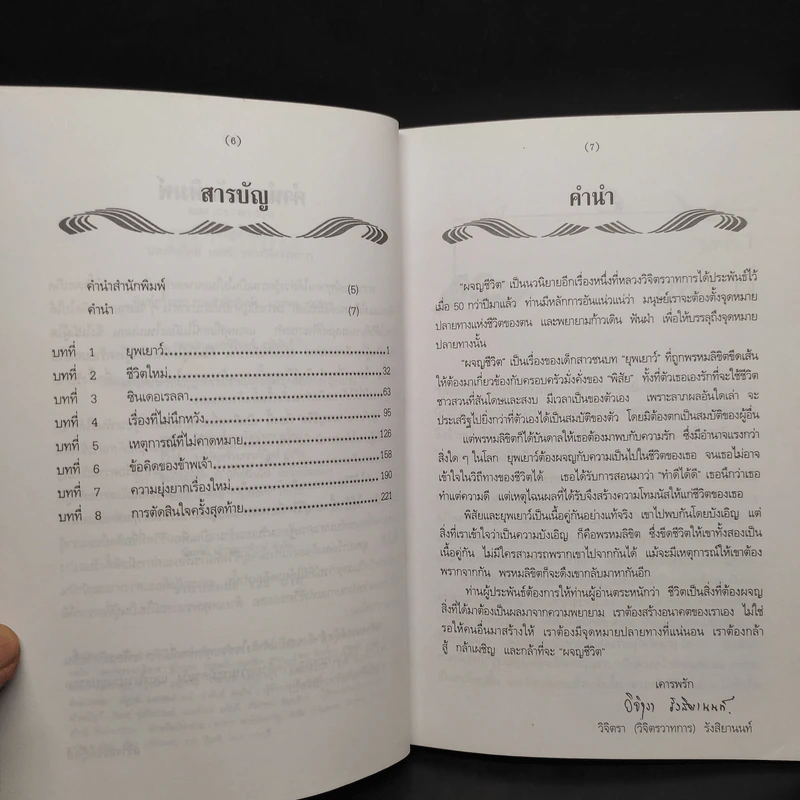 (6)
สารบัญ
คำนำสำนักพิมพ์ (5)
คำนำ (7)
บทที่ 1 ยุพเยาว์........................................1
บทที่ 2 ชีวิตใหม่........................................32
บทที่ 3 ซินเดอเรลลา........................................63
บทที่ 4 เรื่องที่ไม่นึกหวัง........................................95
บทที่ 5 เหตุการณ์ที่ไม่คาดหมาย........................................126
บทที่ 6 ข้อคิดของข้าพเจ้า........................................158
บทที่ 7 ความยุ่งยากเรื่องใหม่........................................190
บทที่ 8 การตัดสินใจครั้งสุดท้าย........................................221
(7)
คำนำ
"ผจญชีวิต" เป็นนวนิยายอีกเรื่องหนึ่งที่หลวงวิจิตรวาทการได้ประพันธ์ไว้
เมื่อ 50 กว่าปีมาแล้ว ท่านมีหลักการอันแน่วแน่ว่า มนุษย์เราจะต้องตั้งจุดหมาย
ปลายทางแห่งชีวิตของตน และพยายามก้าวเดิน ฟันฝ่า เพื่อให้บรรลุถึงจุดหมาย
ปลายทางนั้น
"ผจญชีวิต" เป็นเรื่องของเด็กสาวชนบท "ยุพเยาว์" ที่ถูกพรหมลิขิตขีดเส้น
ให้ต้องมาเกี่ยวข้องกับครอบครัวมั่งคั่งของ "พิสัย" ทั้งที่ตัวเธอเองรักที่จะใช้ชีวิต
ชาวสวนที่สันโดษและสงบ มีเวลาเป็นของตัวเอง เพราะลาภผลอันใดเล่า จะ
ประเสริฐไปยิ่งกว่าที่ตัวเองได้เป็นสมบัติของตัว โดยมิต้องตกเป็นสมบัติของผู้อื่น
แต่พรหมลิขิตก็ได้บันดาลให้เธอต้องมาพบกับความรัก ซึ่งมีอำนาจแรงกว่า
สิ่งใด ๆ ในโลก ยุพเยาว์ต้องผจญกับความเป็นไปในชีวิตของเธอ จนเธอไม่อาจ
เข้าใจในวิถีทางของชีวิตได้ เธอได้รับการสอนมาว่า "ทำดีได้ดี" เธอนึกว่าเธอ
ทำแต่ความดี แต่เหตุไฉนผลที่ได้รับจึงสร้างความโทมนัสให้แก่ชีวิตของเธอ
พิสัยและยุพเยาว์เป็นเนื้อคู่กันอย่างแท้จริง เขาไปพบกันโดยบังเอิญ แต่
สิ่งที่เราเข้าใจว่าเป็นความบังเอิญ ก็คือพรหมลิขิต ซึ่งขีดชีวิตให้เขาทั้งสองเป็น
เนื้อคู่กัน ไม่มีใครสามารถพรากเขาไปจากกันได้ แม้จะมีเหตุการณ์ให้เขาต้อง
พรากจากกัน พรหมลิขิตก็จะดึงเขากลับมาหากันอีก
ท่านผู้ประพันธ์ต้องการให้ท่านผู้อ่านตระหนักว่า ชีวิตเป็นสิ่งที่ต้องผจญ
สิ่งที่ได้มาต้องเป็นผลมาจากความพยายาม เราต้องสร้างอนาคตของเราเอง ไม่ใช่
รอให้คนอื่นมาสร้างให้ เราต้องมีจุดหมายปลายทางที่แน่นอน เราต้องกล้า
สู้ กล้าเผชิญ และกล้าที่จะ "ผจญชีวิต"
เคารพรัก
วิจิตรา รังสิยานนท์.
วิจิตรา (วิจิตรวาทการ) รังสิยานนท์